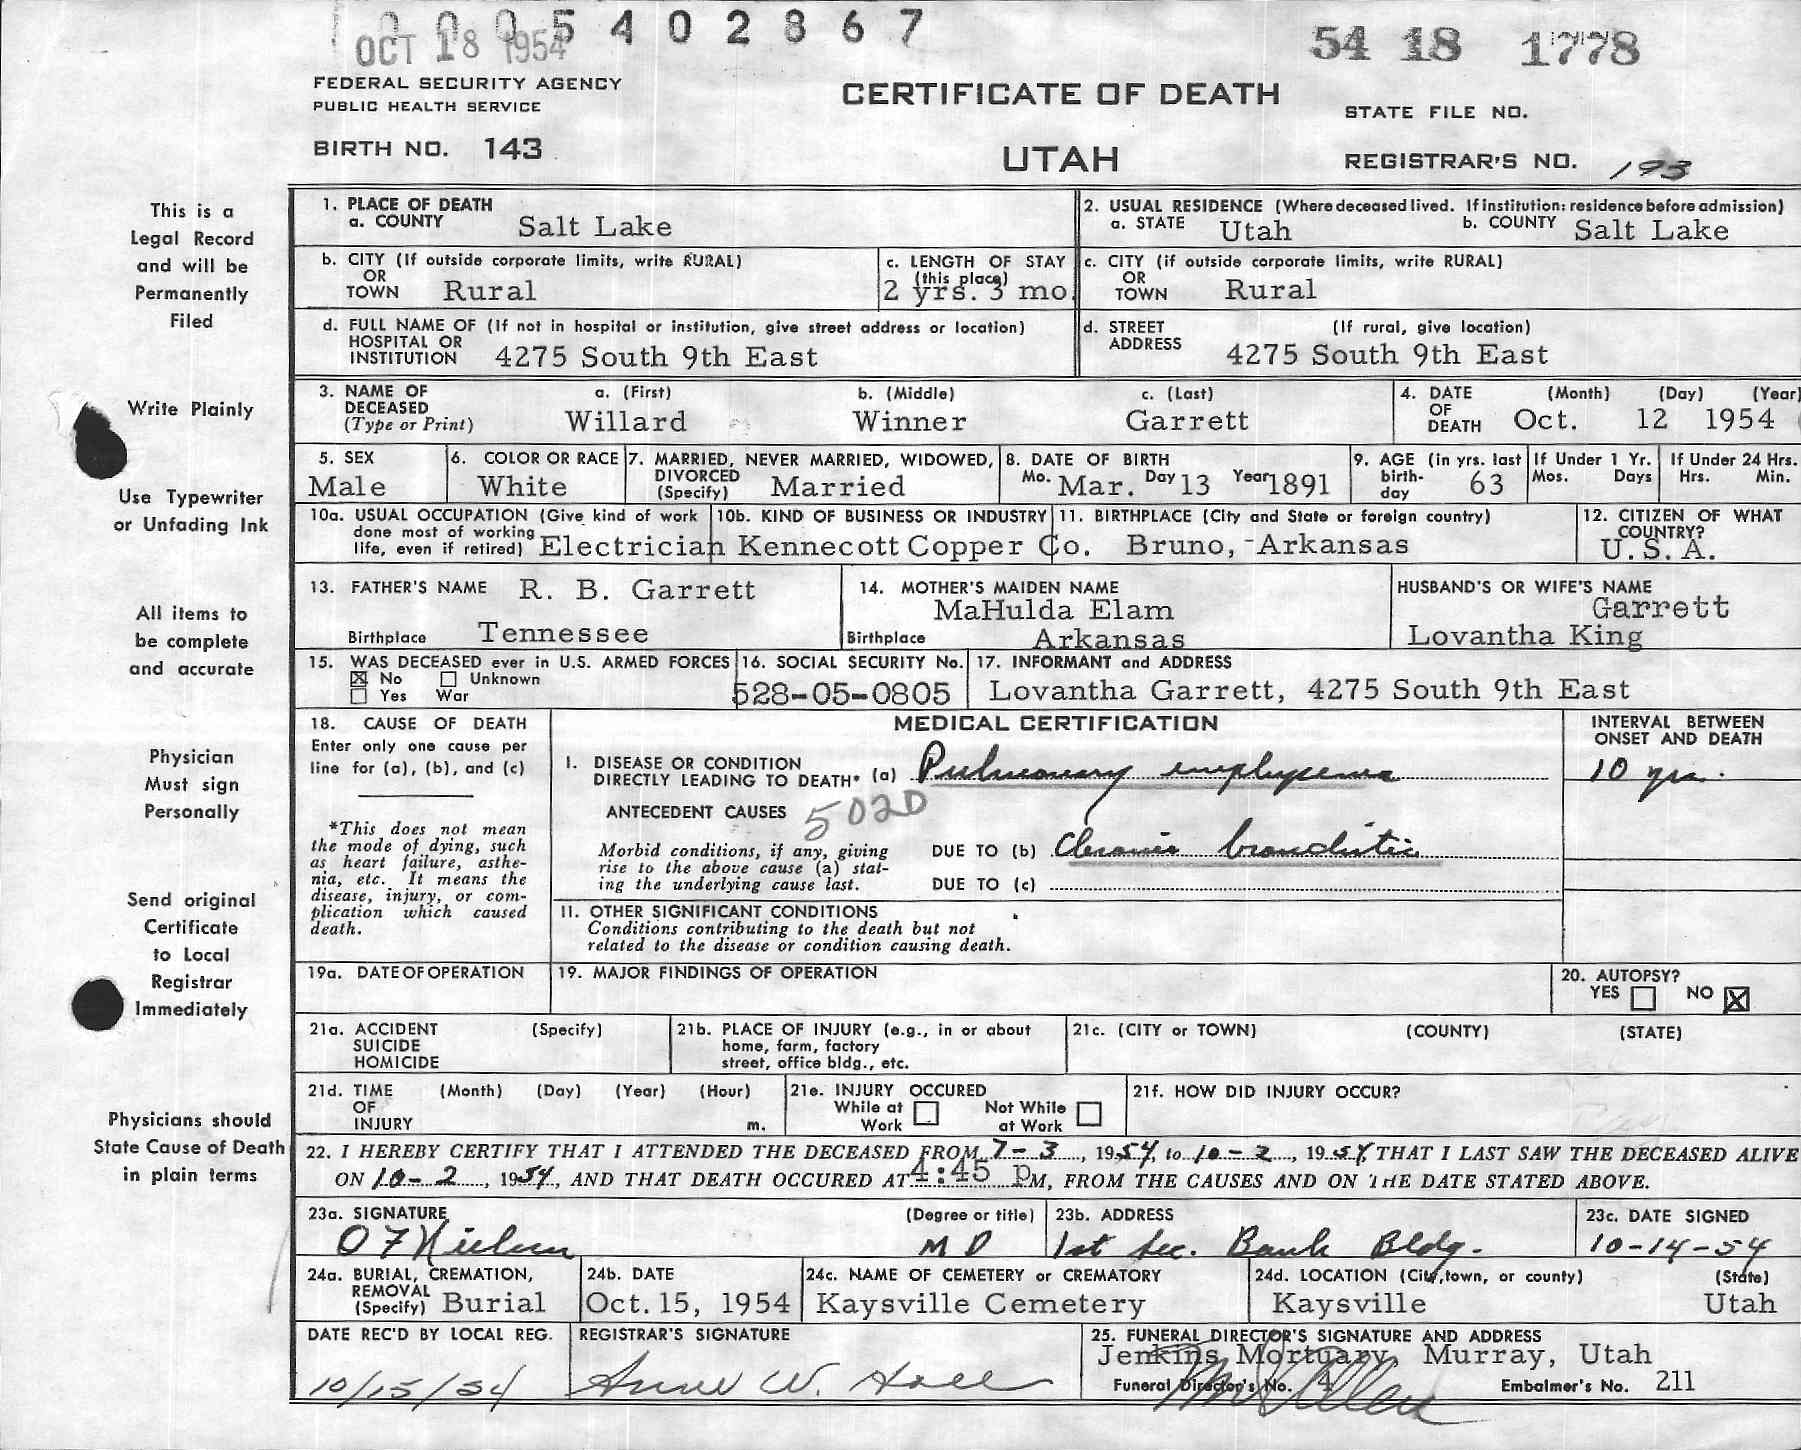 0005402867
OCT 18 1954
54 18 1778
FEDERAL SECURITY AGENCY
PUBLIC HEALTH SERVICE
CERTIFICATE OF DEATH
STATE FILE NO.
BIRTH NO. 143
UTAH
REGISTRAR'S NO. 193
This is a
Legal Record
and will be
Permanently
Filed
Write Plainly
Use Typewriter
or Unfading Ink
All items to
be complete
and accurate
Physician
Must sign
Personally
Send original
Certificate
to Local
Registrar
Immediately
Physicians should
State Cause of Death
in plain terms
1. PLACE OF DEATH
a. COUNTY Salt Lake
2. USUAL RESIDENCE (Where deceased lived. If institution: residence before admission)
a. STATE Utah b. COUNTY Salt Lake
b. CITY (If outside corporate limits, write RURAL)
OR
TOWN Rural
c. LENGTH OF STAY
(this place)
2 yrs. 3 mo.
c. CITY (if outside corporate limits, write RURAL)
OR
TOWN Rural
d. FULL NAME OF (If not in hospital or institution, give street address or location)
HOSPITAL OR
INSTITUTION 4275 South 9th East
d. STREET (If rural, give location)
ADDRESS 4275 South 9th East
3. NAME OF a. (First) b. (Middle) c. (Last)
DECEASED
(Type or Print) Willard Winner Garrett
4. DATE (Month) (Day) (Year)
OF
DEATH Oct. 12 1954
5. SEX
Male
6. COLOR OR RACE
White
7. MARRIED, NEVER MARRIED, WIDOWED,
DIVORCED
(Specify) Married
8. DATE OF BIRTH
Mo. Mar. Day 13 Year 1891
9. AGE (in yrs. last
birth-
day 63
If Under 1 Yr.
Mos. Days
If Under 24 Hrs.
Hrs. Min.
10a. USUAL OCCUPATION (Give kind of work
done most of working
life, even if retired) Electrician
10b. KIND OF BUSINESS OR INDUSTRY
Kennecott Copper Co.
11. BIRTHPLACE (City and State or foreign country)
Bruno, -Arkansas
12. CITIZEN OF WHAT
COUNTRY?
U.S.A.
13. FATHER'S NAME R. B. Garrett
Birthplace Tennessee
14. MOTHER'S MAIDEN NAME
MaHulda Elam
Birthplace Arkansas
HUSBAND'S OR WIFE'S NAME
Garrett
Lovantha King
15. WAS DECEASED ever in U.S. ARMED FORCES
☒ No ☐ Unknown
☐ Yes War
16. SOCIAL SECURITY No.
528-05-0805
17. INFORMANT and ADDRESS
Lovantha Garrett, 4275 South 9th East
18. CAUSE OF DEATH
Enter only one cause per
line for (a), (b), and (c)
*This does not mean
the mode of dying, such
as heart failure, asthe-
nia, etc. It means the
disease, injury, or com-
plication which caused
death.
MEDICAL CERTIFICATION
INTERVAL BETWEEN
ONSET AND DEATH
I. DISEASE OR CONDITION
DIRECTLY LEADING TO DEATH* (a) Pulmonary emphysema 10 yrs.
ANTECEDENT CAUSES 502D
Morbid conditions, if any, giving
rise to the above cause (a) stat-
ing the underlying cause last.
DUE TO (b) Chronic bronchitis
DUE TO (c)
II. OTHER SIGNIFICANT CONDITIONS
Conditions contributing to the death but not
related to the disease or condition causing death.
19a. DATE OF OPERATION
19. MAJOR FINDINGS OF OPERATION
20. AUTOPSY?
YES ☐ NO ☒
21a. ACCIDENT (Specify)
SUICIDE
HOMICIDE
21b. PLACE OF INJURY (e.g., in or about
home, farm, factory
street, office bldg., etc.
21c. (CITY or TOWN) (COUNTY) (STATE)
21d. TIME (Month) (Day) (Year) (Hour)
OF
INJURY m.
21e. INJURY OCCURED
While at ☐ Not While ☐
Work at Work
21f. HOW DID INJURY OCCUR?
22. I HEREBY CERTIFY THAT I ATTENDED THE DECEASED FROM 7-3, 1954, to 10-2, 1954, THAT I LAST SAW THE DECEASED ALIVE
ON 10-2, 1954, AND THAT DEATH OCCURED AT 4:45 PM, FROM THE CAUSES AND ON THE DATE STATED ABOVE.
23a. SIGNATURE (Degree or title)
O F Nielsen M D
23b. ADDRESS
1st Sec. Bank Bldg.
23c. DATE SIGNED
10-14-54
24a. BURIAL, CREMATION,
REMOVAL
(Specify) Burial
24b. DATE
Oct. 15, 1954
24c. NAME OF CEMETERY or CREMATORY
Kaysville Cemetery
24d. LOCATION (City, town, or county) (State)
Kaysville Utah
DATE REC'D BY LOCAL REG.
10/15/54
REGISTRAR'S SIGNATURE
25. FUNERAL DIRECTOR'S SIGNATURE AND ADDRESS
Jenkins Mortuary, Murray, Utah
Funeral Director's No. 4 Embalmer's No. 211